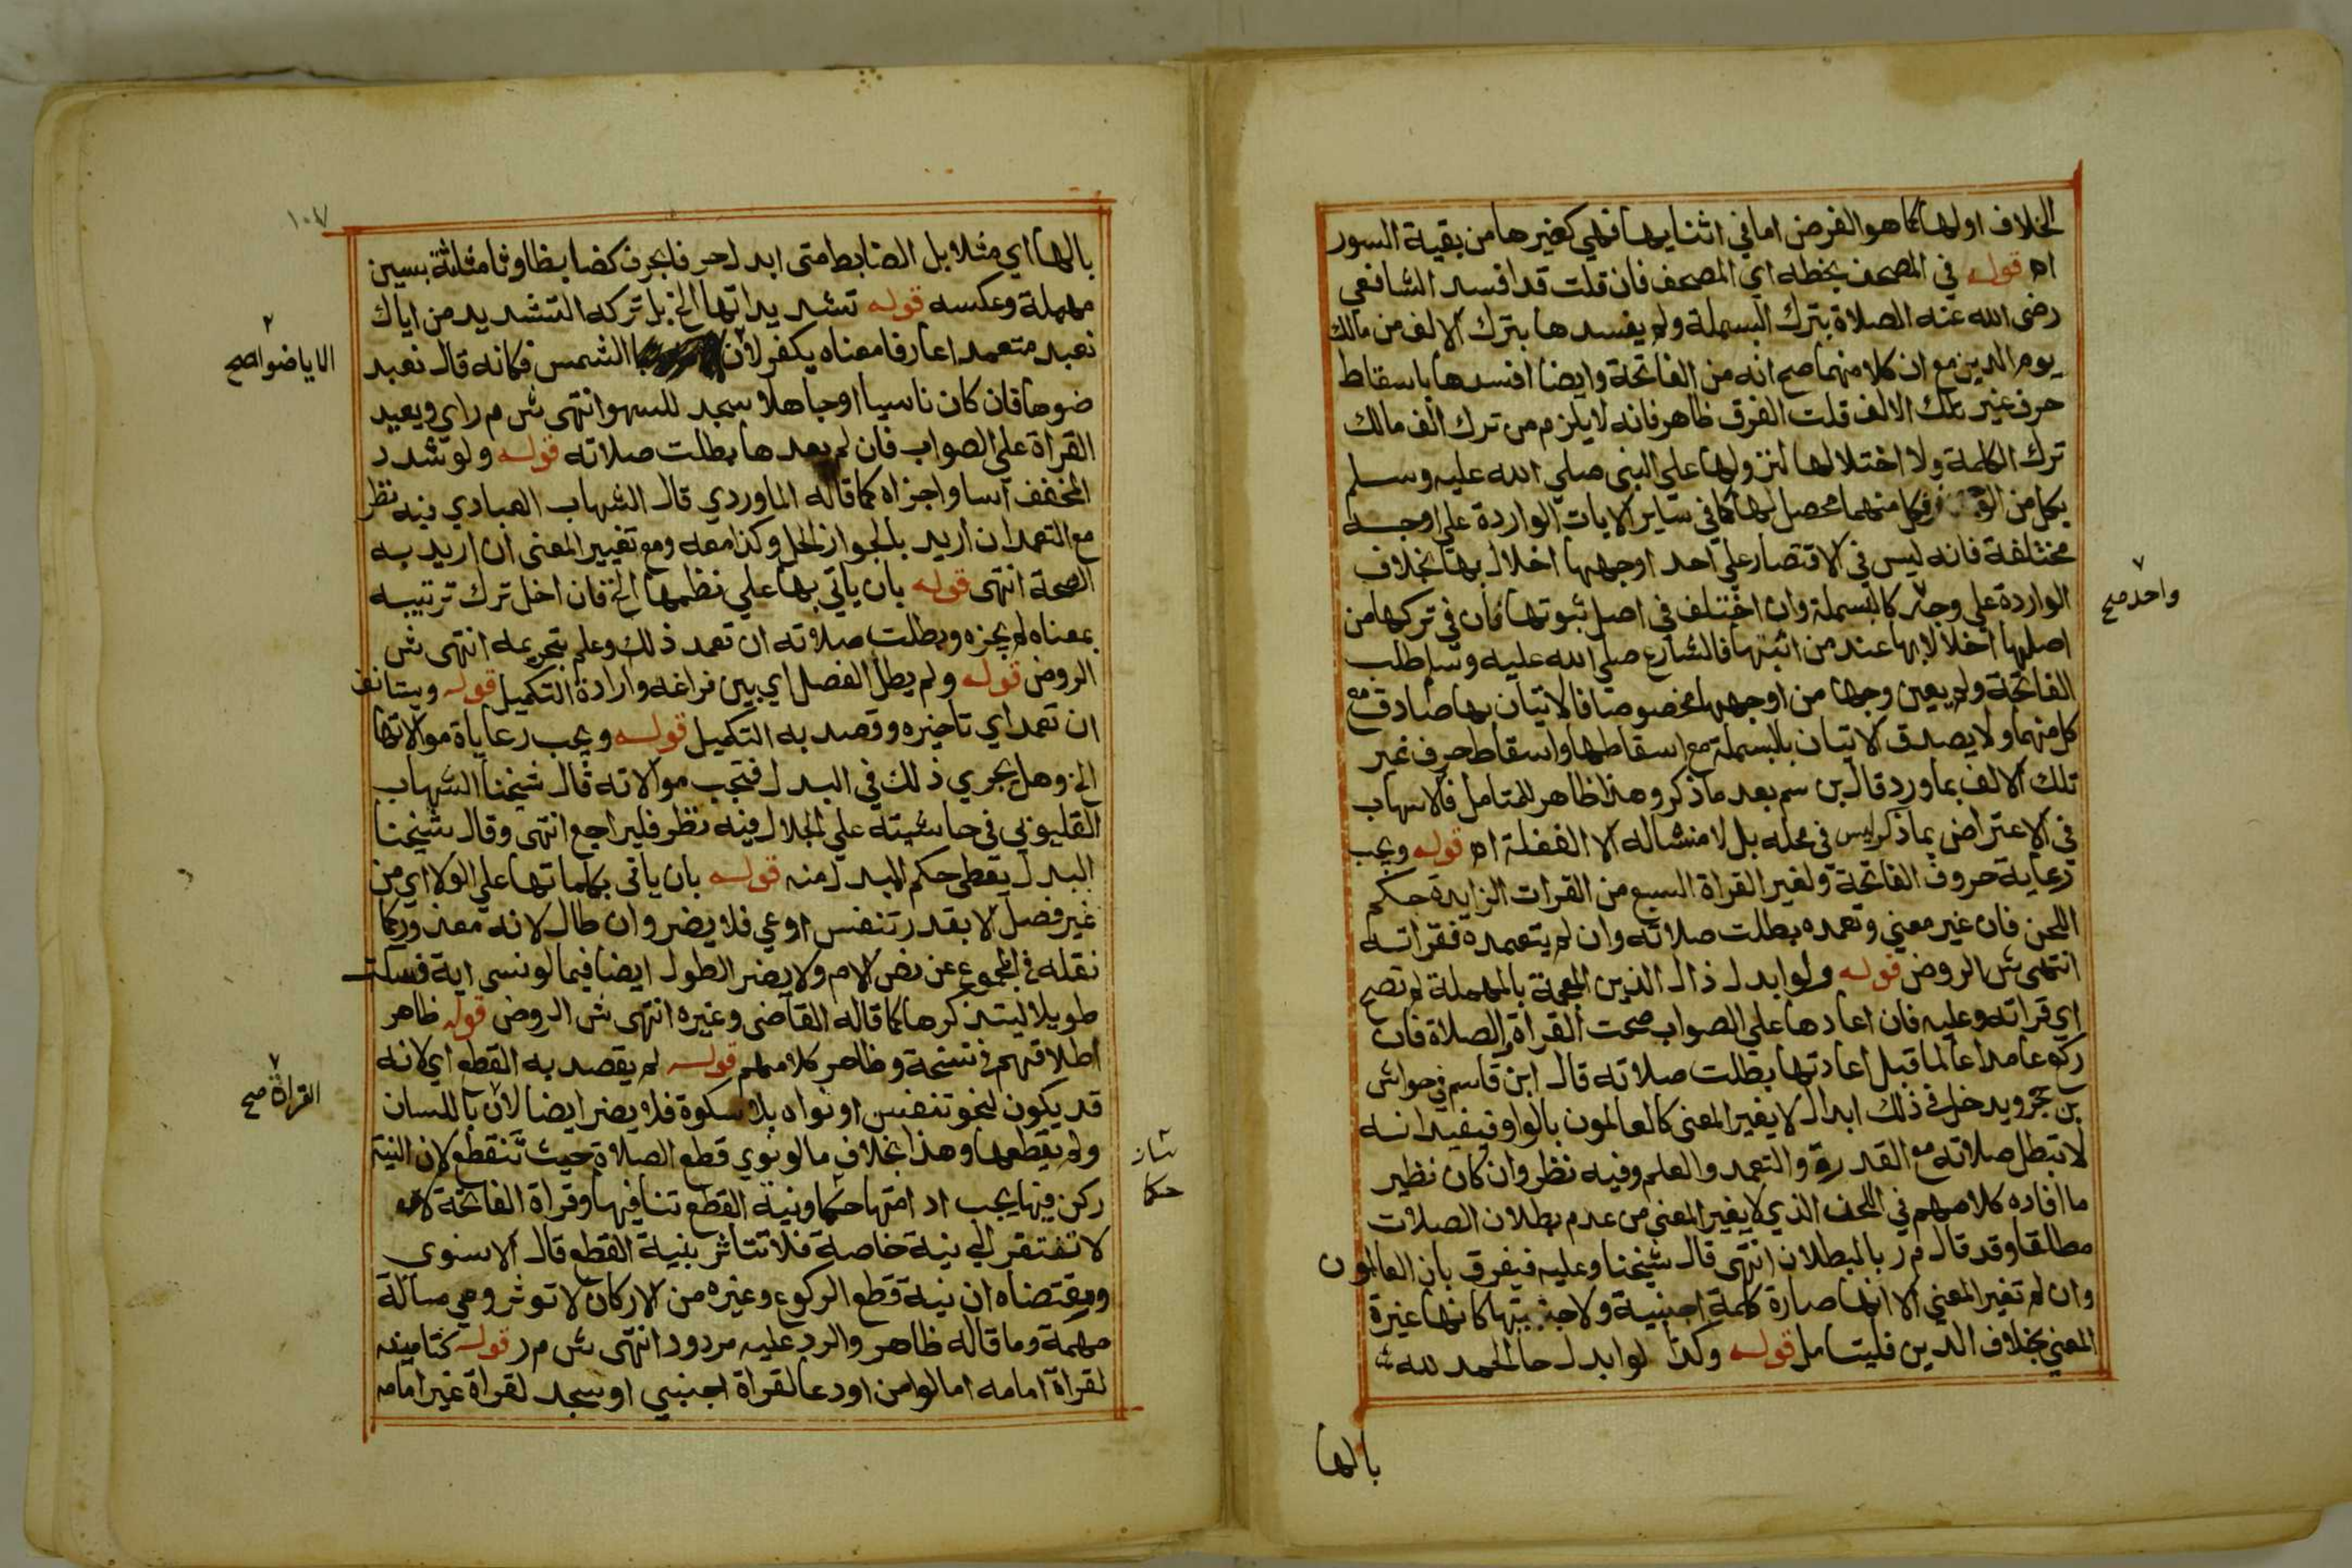 الخلاف اولها كما هو الفرض اما في اثنايها فهي كغيرها من بقية السور
اه قوله في المصحف بخطه اي المصحف فان قلت قد افسد الشافعي
رضى الله عنه الصلاة بترك البسملة ولم يفسدها بترك الالف من مالك
يوم الدين مع ان كلا منهما صح انه من الفاتحة وايضا افسدها باسقاط
حرف غير تلك الالف قلت الفرق ظاهر فانه لا يلزم من ترك الف مالك
ترك الكلمة ولا اختلالها لنزولها علي النبى صلي الله عليه وسلم
بكل من فكل منهما محصل لها كما في ساير الايات الواردة علي اوجه
مختلفة فانه ليس في الاقتصار علي احد اوجهها اخلال بها بخلاف
الواردة علي وجه كالبسملة وان اختلف في اصل ثبوتها فان في تركها من
واحد صح
اصلها اخلالا بها عند من اثبتها فالشارع صلي الله عليه وسلم طلب
الفاتحة ولم يعين وجها من اوجهها مخصوصا فالاتيان بها صادق مع
كل منهما ولا يصدق الاتيان بالبسملة مع اسقاطها واسقاط حرف غير
تلك الالف بما ورد قال بن سم بعد ما ذكر وهذا ظاهر للمتامل فالاسهاب
في الاعتراض بما ذكر ليس في محله بل لا منشاله الا الغفلة اه قوله ويجب
رعاية حروف الفاتحة ولغير القراة السبع من القرات الزايدة حكم
اللحن فان غير معني وتعمده بطلت صلاته وان لم يتعمده فقراته
انتهى ش الروض قوله ولو ابدل ذال الذين المعجمة بالمهملة لم تصح
اي قراته وعليه فان اعادها علي الصواب صحت القراة والصلاة فان
ركع عامدا عالما قبل اعادتها بطلت صلاته قال ابن قاسم في حواش
بن حجر ويدخل في ذلك ابدال لا يغير المعنى كالعالمون بالواو فيفيد انه
لا تبطل صلاته مع القدرة والتعمد والعلم وفيه نظر وان كان نظير
ما افاده كلامهم في اللحن الذي لا يغير المعني من عدم بطلان الصلات
مطالقا وقد قال م ر بالبطلان انتهى قال شيخنا وعليه فيفرق بان العالمون
وان لم تغير المعني الا انها صارة كلمة اجنبية ولاجنبيتها كانها غيرة
المعني بخلاف الدين فليتامل قوله وكذا لوابدل حا الحمد لله
بالها
بالها اي مثلا بل الضابط متى ابدل حرفا بحرف كضاد بظا وثا مثلثة بسين
مهملة وعكسه قوله تشديداتها الخ بل تركه التشديد من اياك
نعبد متعمدا عارفا معناه يكفر لان الشمس فكانه قال نعبد
الايا ضوا صح
ضوها فان كان ناسيا او جاهلا سجد للسهو انتهى ش م راي ويعيد
القراة علي الصواب فان لم يعدها بطلت صلاته قوله ولو شدد
المخفف اسا واجزاه كما قاله الماوردي قال الشهاب العبادي فيه نظر
مع التعمد ان اريد بالجواز الحل وكذا معه ومع تغيير المعنى ان اريد به
الصحة انتهى قوله بان ياتي بها علي نظمها الخ فان اخل ترك ترتيبه
بمعناه لم يجزه وبطلت صلاته ان تعمد ذلك وعلم بتحريمه انتهى ش
الروض قوله ولم يطل الفصل اي بين فراغه وارادة التكميل قوله ويستانف
ان تعمد اي تاخيره وقصد به التكميل قوله ويجب رعاياة موالاتها
الخ وهل يجري ذلك في البدل فتجب موالاته قال شيخنا الشهاب
القليوبي في حاشيته علي الجلال فيه نظر فليراجع انتهى وقال شيخنا
البدل يعطي حكم المبدل منه قوله بان ياتى بكلماتها علي الولا اي من
غير فصل الا بقدر تنفس او عي فلا يضر وان طال لانه معذور كما
نقله في المجموع عن نص الام ولا يضر الطول ايضا فيما لو نسى اية فسكت
طويلا ليتذكرها كما قاله القاضى وغيره انتهى ش الروض قوله ظاهر
اطلاقهم في نسخة وظاهر كلامهم قوله لم يقصد به القطع اي لانه
قد يكون لنحو تنفس او نواه بلا سكوة فلا يضر ايضا لان باللسان
القراة صح
ولم يقطعها وهذا بخلاف ما لو نوي قطع الصلاة حيث تنقطع لان النية
ركن فيها يجب ادامتها حكما ونية القطع تنافيها وقراة الفاتحة
حكما
لا تفتقر الي نية خاصة فلا تتاثر بنية القطع قال الاسنوى
ومقتضاه ان نية قطع الركوع وغيره من الاركان لا توثر وهي مسالة
مهمة وما قاله ظاهر والرد عليه مردود انتهى ش م ر قوله كتامينه
لقراة امامه اما لو امن او دعا لقراة اجنبي او سجد لقراة غير امامه
١٠٧